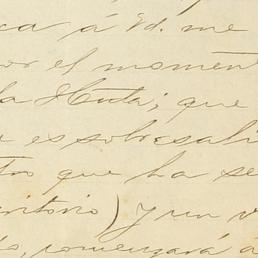 ca á Vd. me
or el moment
la Huta; que
a es sobresali
tro que ha se
ritorio) y un v
comenzará á